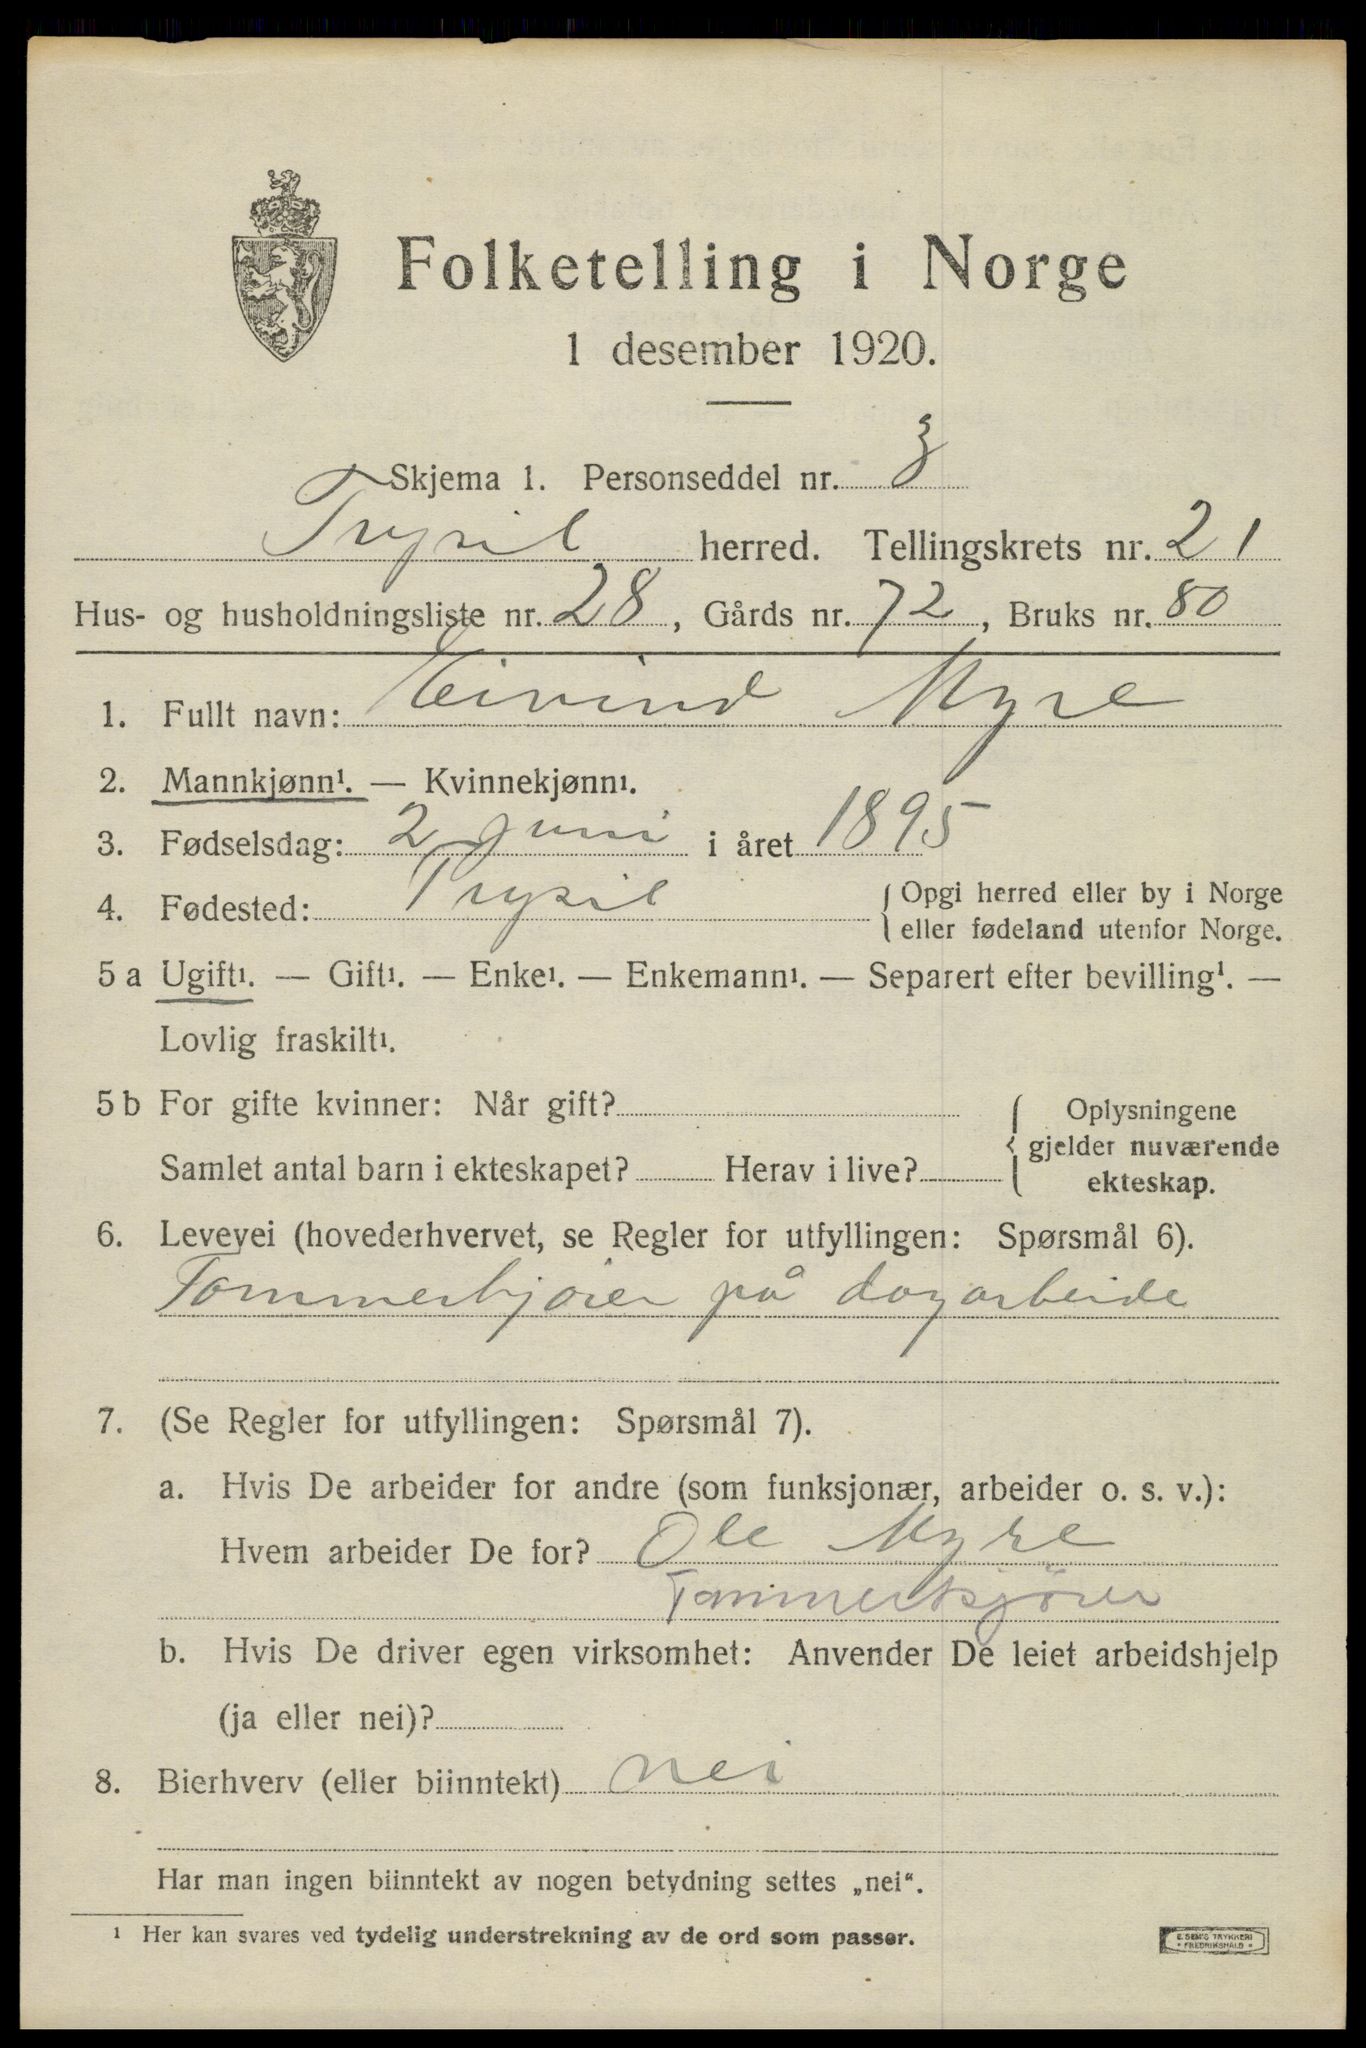 Folketelling i Norge
1 desember 1920.
Skjema 1. Personseddel nr. 3
Trysil herred. Tellingskrets nr. 21
Hus- og husholdningsliste nr. 28, Gårds nr. 72, Bruks nr. 80
1. Fullt navn: Eivind Myre
2. Mannkjønn¹. — Kvinnekjønn¹.
3. Fødselsdag: 2 juni i året 1895
4. Fødested: Trysil { Opgi herred eller by i Norge
eller fødeland utenfor Norge.
5 a Ugift¹. — Gift¹. — Enke¹. — Enkemann¹. — Separert efter bevilling¹. —
Lovlig fraskilt¹.
5 b For gifte kvinner: Når gift? { Oplysningene
gjelder nuværende
Samlet antal barn i ekteskapet? Herav i live?
ekteskap.
6. Levevei (hovederhvervet, se Regler for utfyllingen: Spørsmål 6).
Tømmerkjører på dagarbeide
7. (Se Regler for utfyllingen: Spørsmål 7).
a. Hvis De arbeider for andre (som funksjonær, arbeider o. s. v.):
Hvem arbeider De for? Ole Myre
Tømmerkjører
b. Hvis De driver egen virksomhet: Anvender De leiet arbeidshjelp
(ja eller nei)?
8. Bierhverv (eller biinntekt) nei
Har man ingen biinntekt av nogen betydning settes „nei“.
¹ Her kan svares ved tydelig understrekning av de ord som passer.
E. SEM'S TRYKKERI
• FREDRIKSHALD •